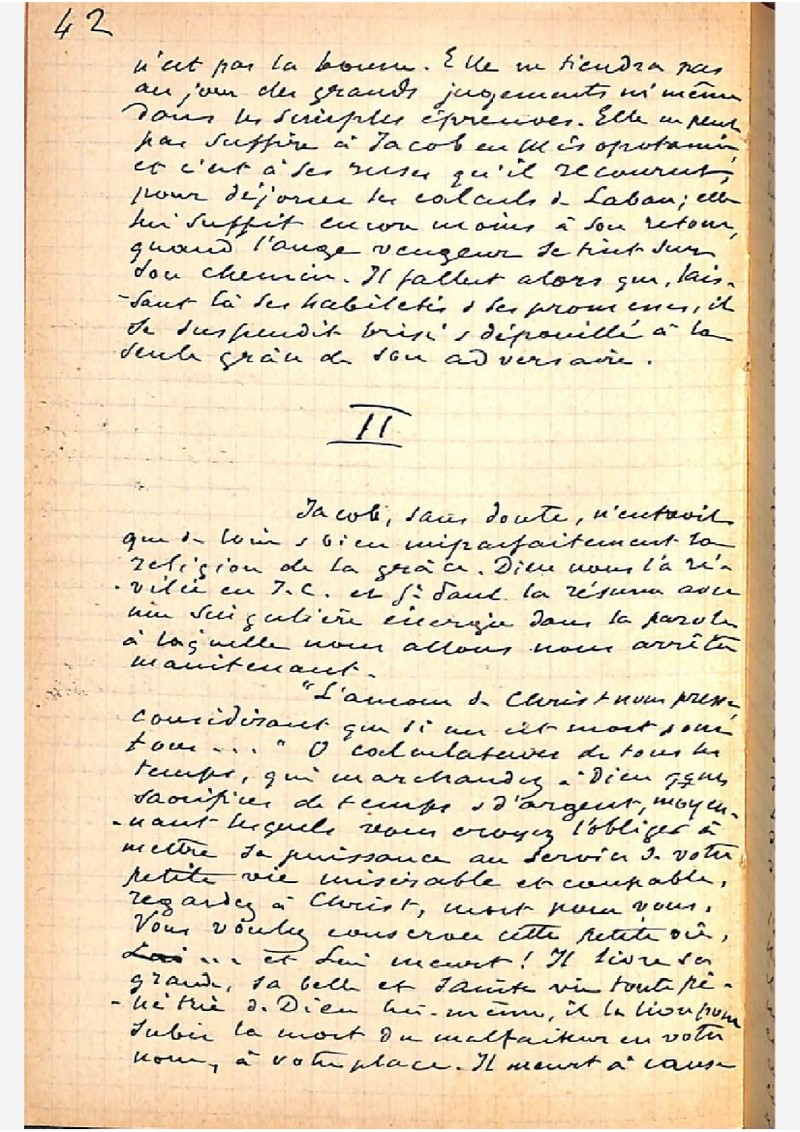 42
n'est pas la bonne. Elle ne tiendra pas
au jour des grands jugements ni même
dans les simples épreuves. Elle ne peut
pas suffire à Jacob en Mésopotamie,
et c'est à ses ruses qu'il recourut,
pour déjouer les calculs de Laban ; elle
lui suffit encore moins à son retour,
quand l'ange vengeur se tint sur
son chemin. Il fallut alors que, lais-
-sant là ses habiletés & ses promesses, il
se suspendit brisé & dépouillé à la
seule grâce de son adversaire.
II
Jacob, sans doute, n'entrevit
que de loin & bien imparfaitement la
religion de la grâce. Dieu nous l'a ré-
-vélée en J.C. et St Paul la résume avec
une singulière énergie dans la parole
à laquelle nous allons nous arrêter
maintenant.
"L'amour de Christ nous presse,
considérant que si un est mort pour
tous ... " O calculateurs de tous les
temps, qui marchandez à Dieu qques
sacrifices de temps & d'argent, moyen-
-nant lesquels vous croyez l'obliger à
mettre sa puissance au service de votre
petite vie misérable et coupable,
regardez à Christ, mort pour vous.
Vous voulez conserver cette petite vie,
... et Lui meurt ! Il livre sa
grande, sa belle et sainte vie toute pé-
-nétrée de Dieu lui-même, il la livre pour
subir la mort du malfaiteur en votre
nom, à votre place. Il meurt à cause